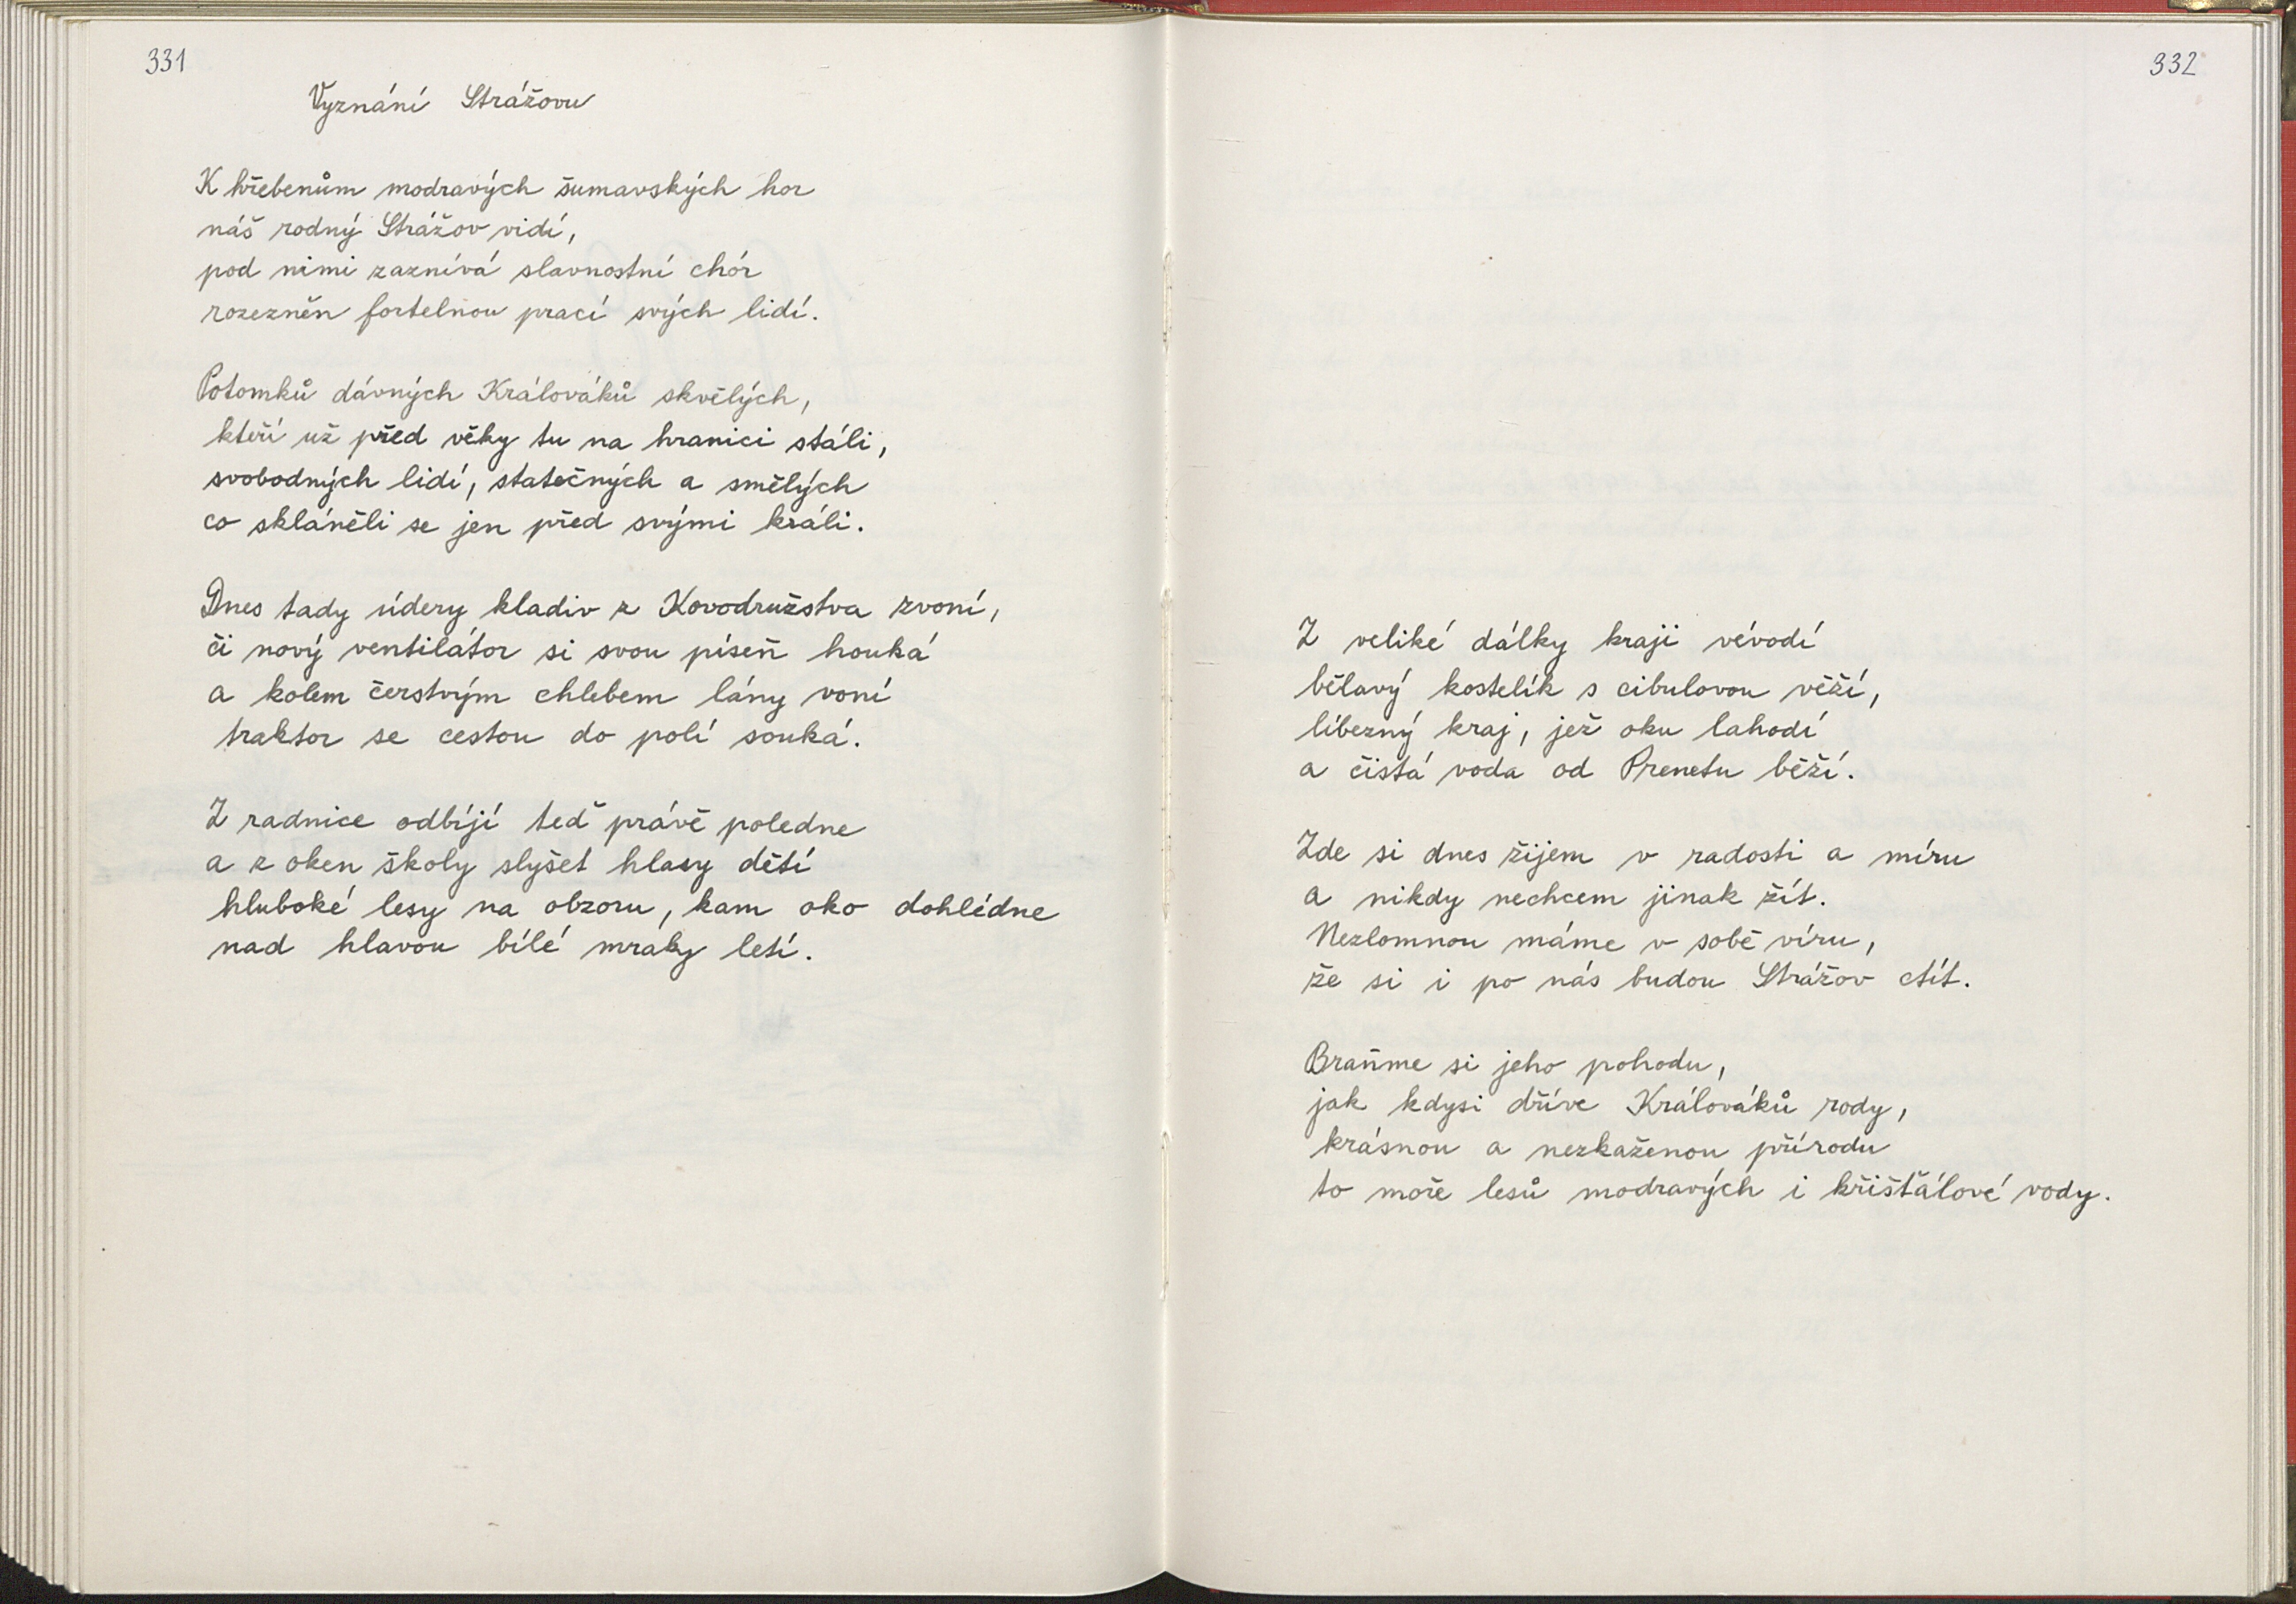 331
Vyznání Strážovu
K hřebenům modravých šumavských hor
náš rodný Strážov vidí,
pod nimi zaznívá slavnostní chór
rozezněn fortelnou prací svých lidí.
Potomků dávných Králováků skvělých,
kteří už před věky tu na hranici stáli,
svobodných lidí, statečných a smělých
co skláněli se jen před svými králi.
Dnes tady údery kladiv z Kovodružstva zvoní,
či nový ventilátor si svou píseň houká
a kolem čerstvým chlebem lány voní
traktor se cestou do polí souká.
Z radnice odbíjí teď právě poledne
a z oken školy slyšet hlasy dětí
hluboké lesy na obzoru, kam oko dohlédne
nad hlavou bílé mraky letí.
332
Z veliké dálky kraji vévodí
bělavý kostelík s cibulovou věží,
líbezný kraj, jež oku lahodí
a čistá voda od Prenetu běží.
Zde si dnes žijem v radosti a míru
a nikdy nechcem jinak žít.
Nezlomnou máme v sobě víru,
že si i po nás budou Strážov ctít.
Braňme si jeho pohodu,
jak kdysi dříve Králováků rody,
krásnou a nezkaženou přírodu
to moře lesů modravých i křišťálové vody.